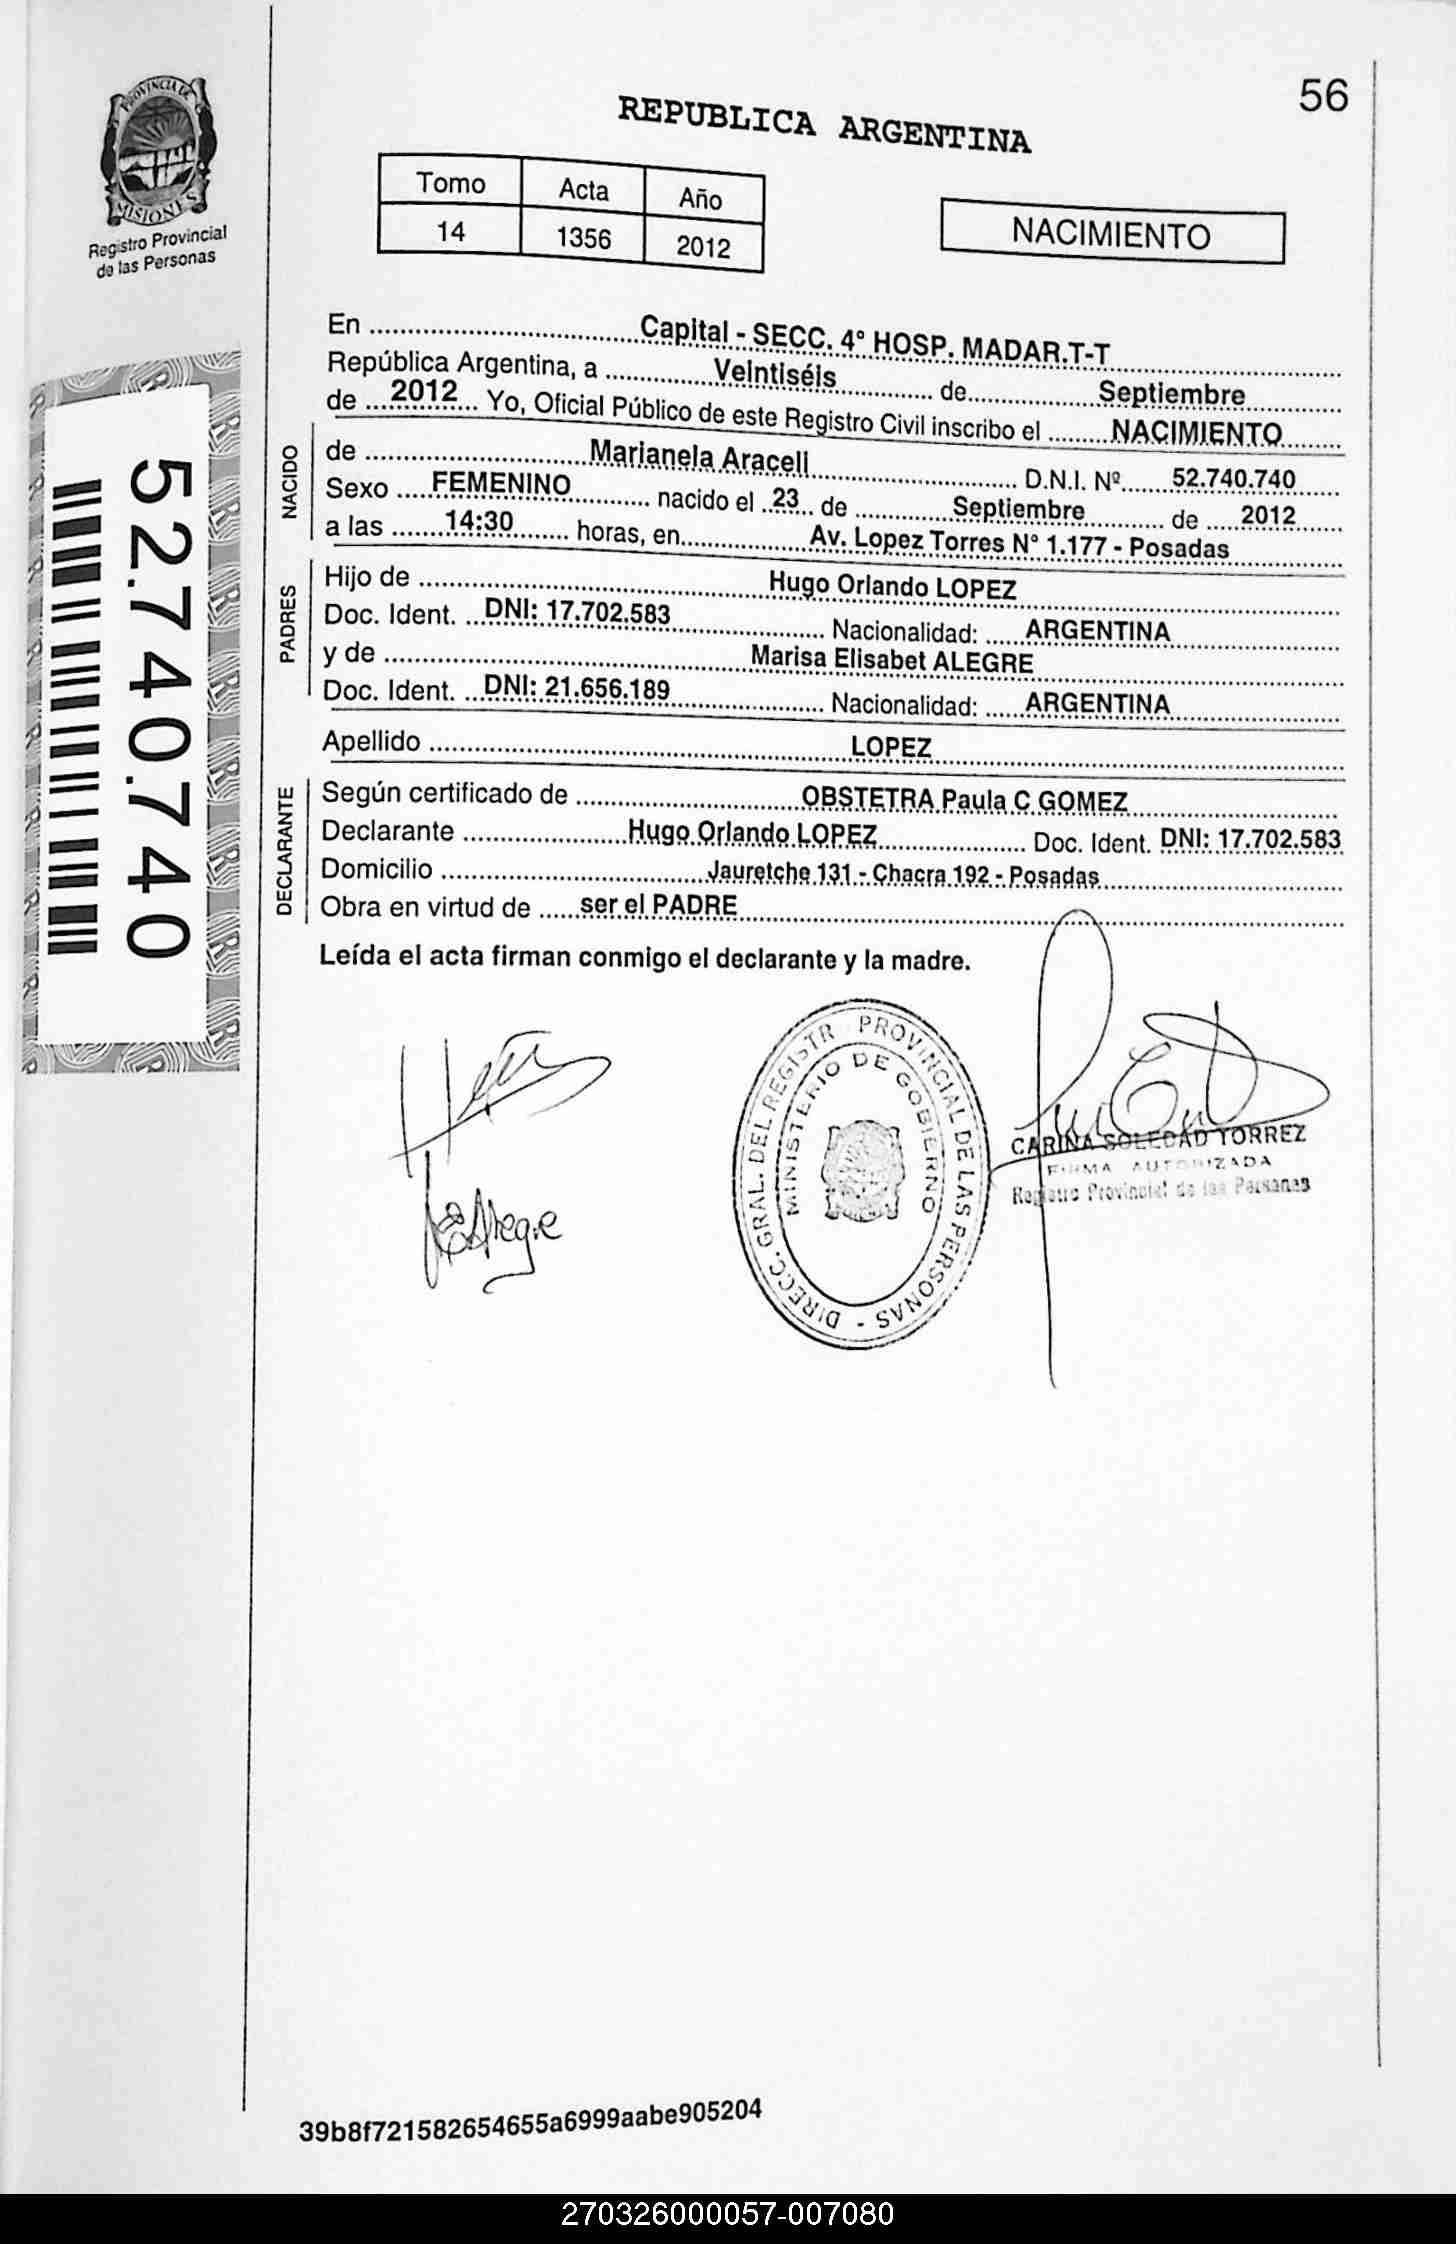 56
REPUBLICA ARGENTINA
PROVINCIA DE
MISIONES
Registro Provincial
de las Personas
Tomo Acta Año
14 1356 2012
NACIMIENTO
52.740.740
En ........ Capital - SECC. 4° HOSP. MADAR.T-T
República Argentina, a ........ Veintiséis ........ de ........ Septiembre
de ... 2012 ... Yo, Oficial Público de este Registro Civil inscribo el ........ NACIMIENTO
NACIDO
de ........ Marianela Araceli ........ D.N.I. Nº ...... 52.740.740
Sexo .... FEMENINO ........ nacido el .. 23 .. de ........ Septiembre ........ de .... 2012
a las ...... 14:30 ...... horas, en ........ Av. Lopez Torres N° 1.177 - Posadas
PADRES
Hijo de ........ Hugo Orlando LOPEZ
Doc. Ident. ... DNI: 17.702.583 ........ Nacionalidad: ..... ARGENTINA
y de ........ Marisa Elisabet ALEGRE
Doc. Ident. ... DNI: 21.656.189 ........ Nacionalidad: ..... ARGENTINA
Apellido ........ LOPEZ
DECLARANTE
Según certificado de ........ OBSTETRA Paula C GOMEZ
Declarante ........ Hugo Orlando LOPEZ ........ Doc. Ident. DNI: 17.702.583
Domicilio ........ Jauretche 131 - Chacra 192 - Posadas
Obra en virtud de ..... ser el PADRE
Leída el acta firman conmigo el declarante y la madre.
DIRECC. GRAL. DEL REGISTR PROVINCIAL DE LAS PERSONAS -
MINISTERIO DE GOBIERNO
Alegre
CARINA SOLEDAD TORREZ
FIRMA AUTORIZADA
Registro Provincial de las Personas
39b8f721582654655a6999aabe905204
270326000057-007080